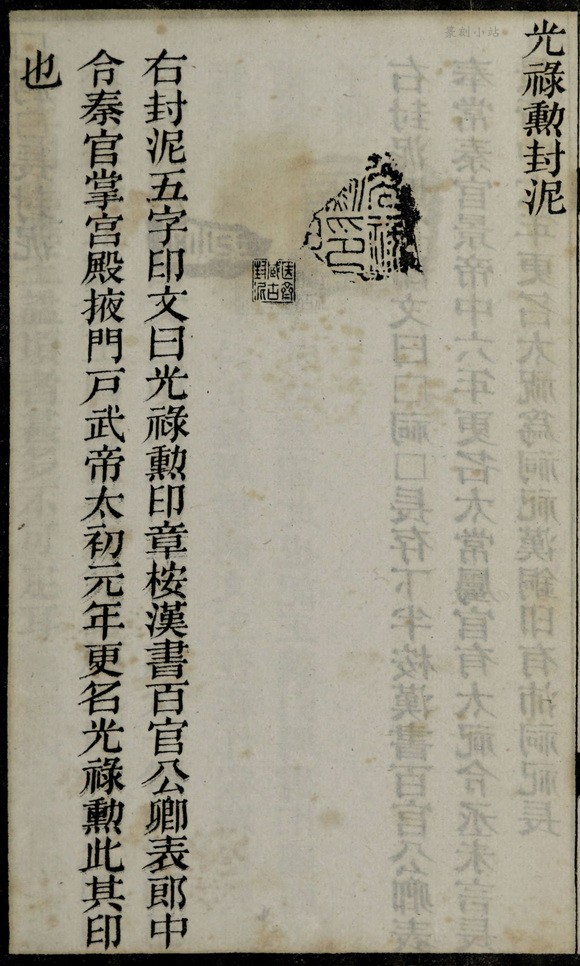 光祿勲封泥
右封泥五字印文曰光祿勲印章桉漢書百官公卿表郎中
令秦官掌宫殿掖門戸武帝太初元年更名光祿勲此其印
也
篆刻小站